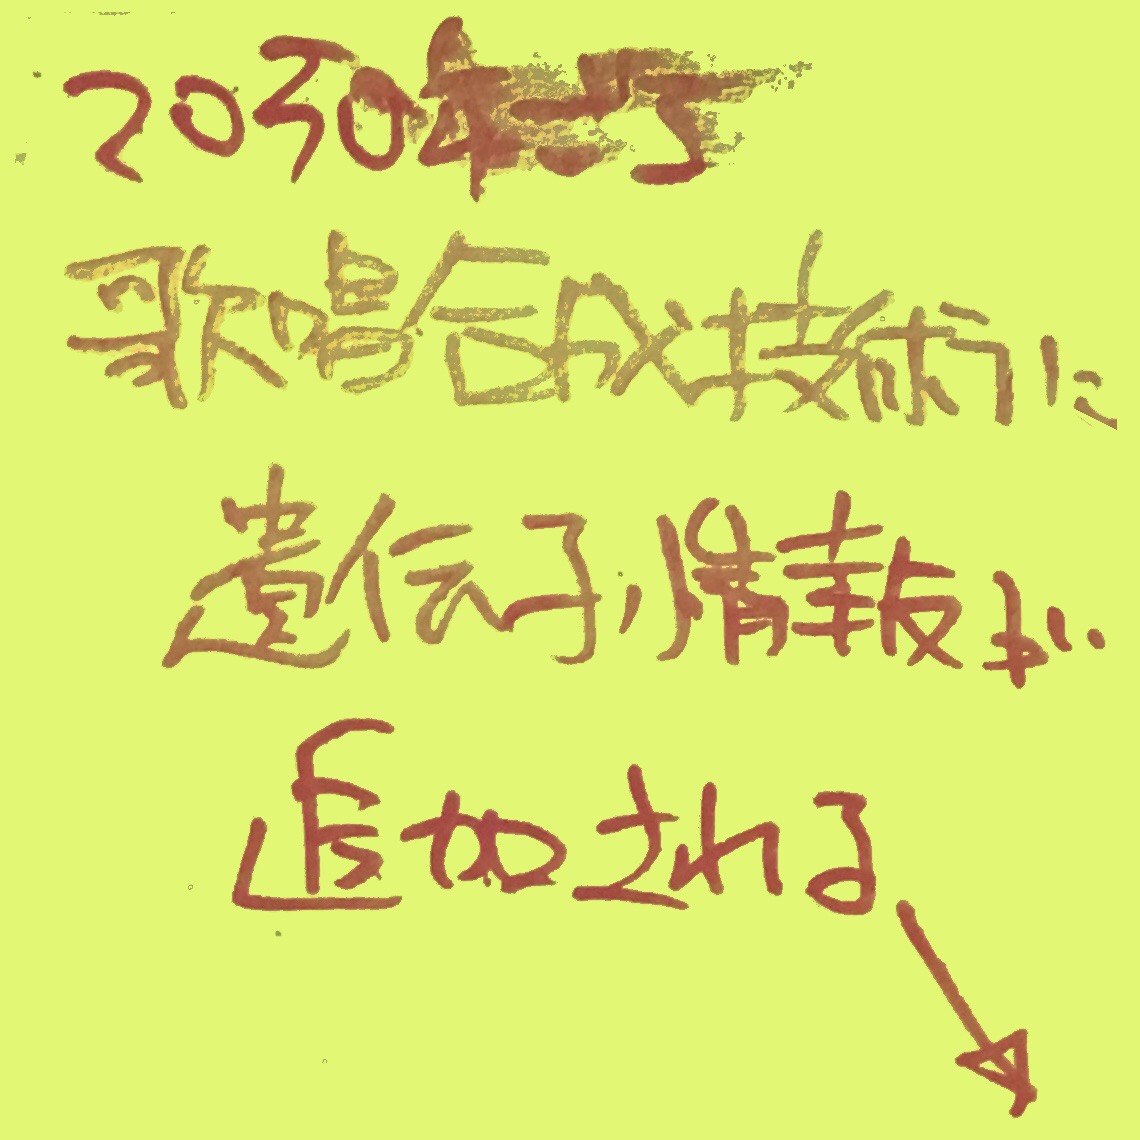 2030年
歌唱合成技術に
遺伝子情報が
追加される